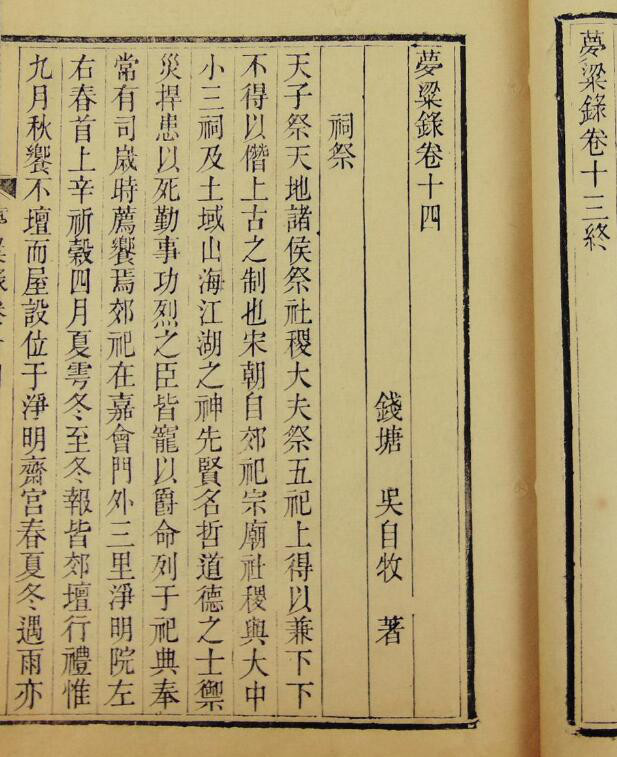 夢粱錄卷十三終
夢粱錄卷十四
錢塘 吳自牧 著
祠祭
天子祭天地諸侯祭社稷大夫祭五祀上得以兼下下
不得以僭上古之制也宋朝自郊祀宗廟社稷與大中
小三祠及土域山海江湖之神先賢名哲道德之士禦
災捍患以死勤事功烈之臣皆寵以爵命列于祀典奉
常有司歲時薦饗焉郊祀在嘉會門外三里淨明院左
右春首上辛祈穀四月夏雩冬至冬報皆郊壇行禮惟
九月秋饗不壇而屋設位于淨明齋宮春夏冬遇雨亦